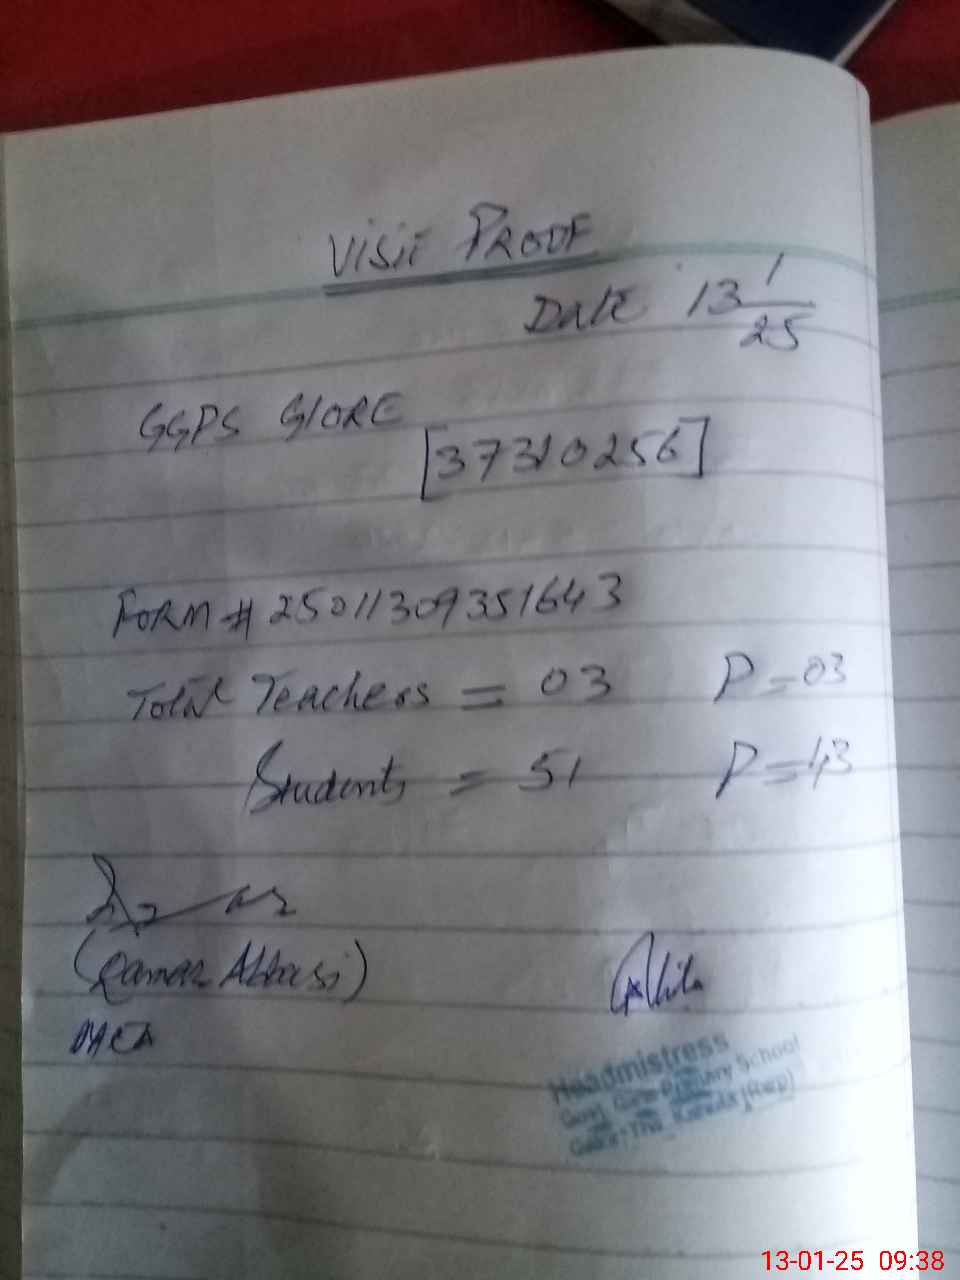 Visit Proof
Date 13 1/25
GGPS GLORE
[37310256]
Form # 25011309351643
Total Teachers = 03 P=03
Students = 51 P=43
(Qamar Abbasi)
MEA
Headmistress
Govt. Girls Primary School
Kahuta (Rwp)
13-01-25 09:38